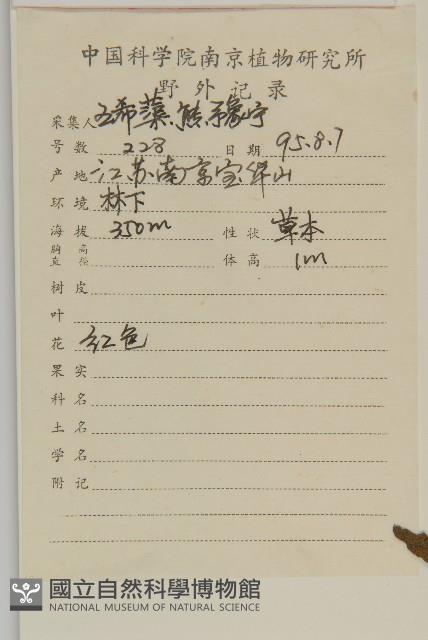 中国科学院南京植物研究所
野外记录
采集人 王希蕖.熊豫宁
号数 228 日期 95.8.7
产地 江苏南京宝华山
环境 林下
海拔 350m 性状 草本
胸高直径 体高 1m
树皮
叶
花 红色
果实
科名
土名
学名
附记
國立自然科學博物館
NATIONAL MUSEUM OF NATURAL SCIENCE